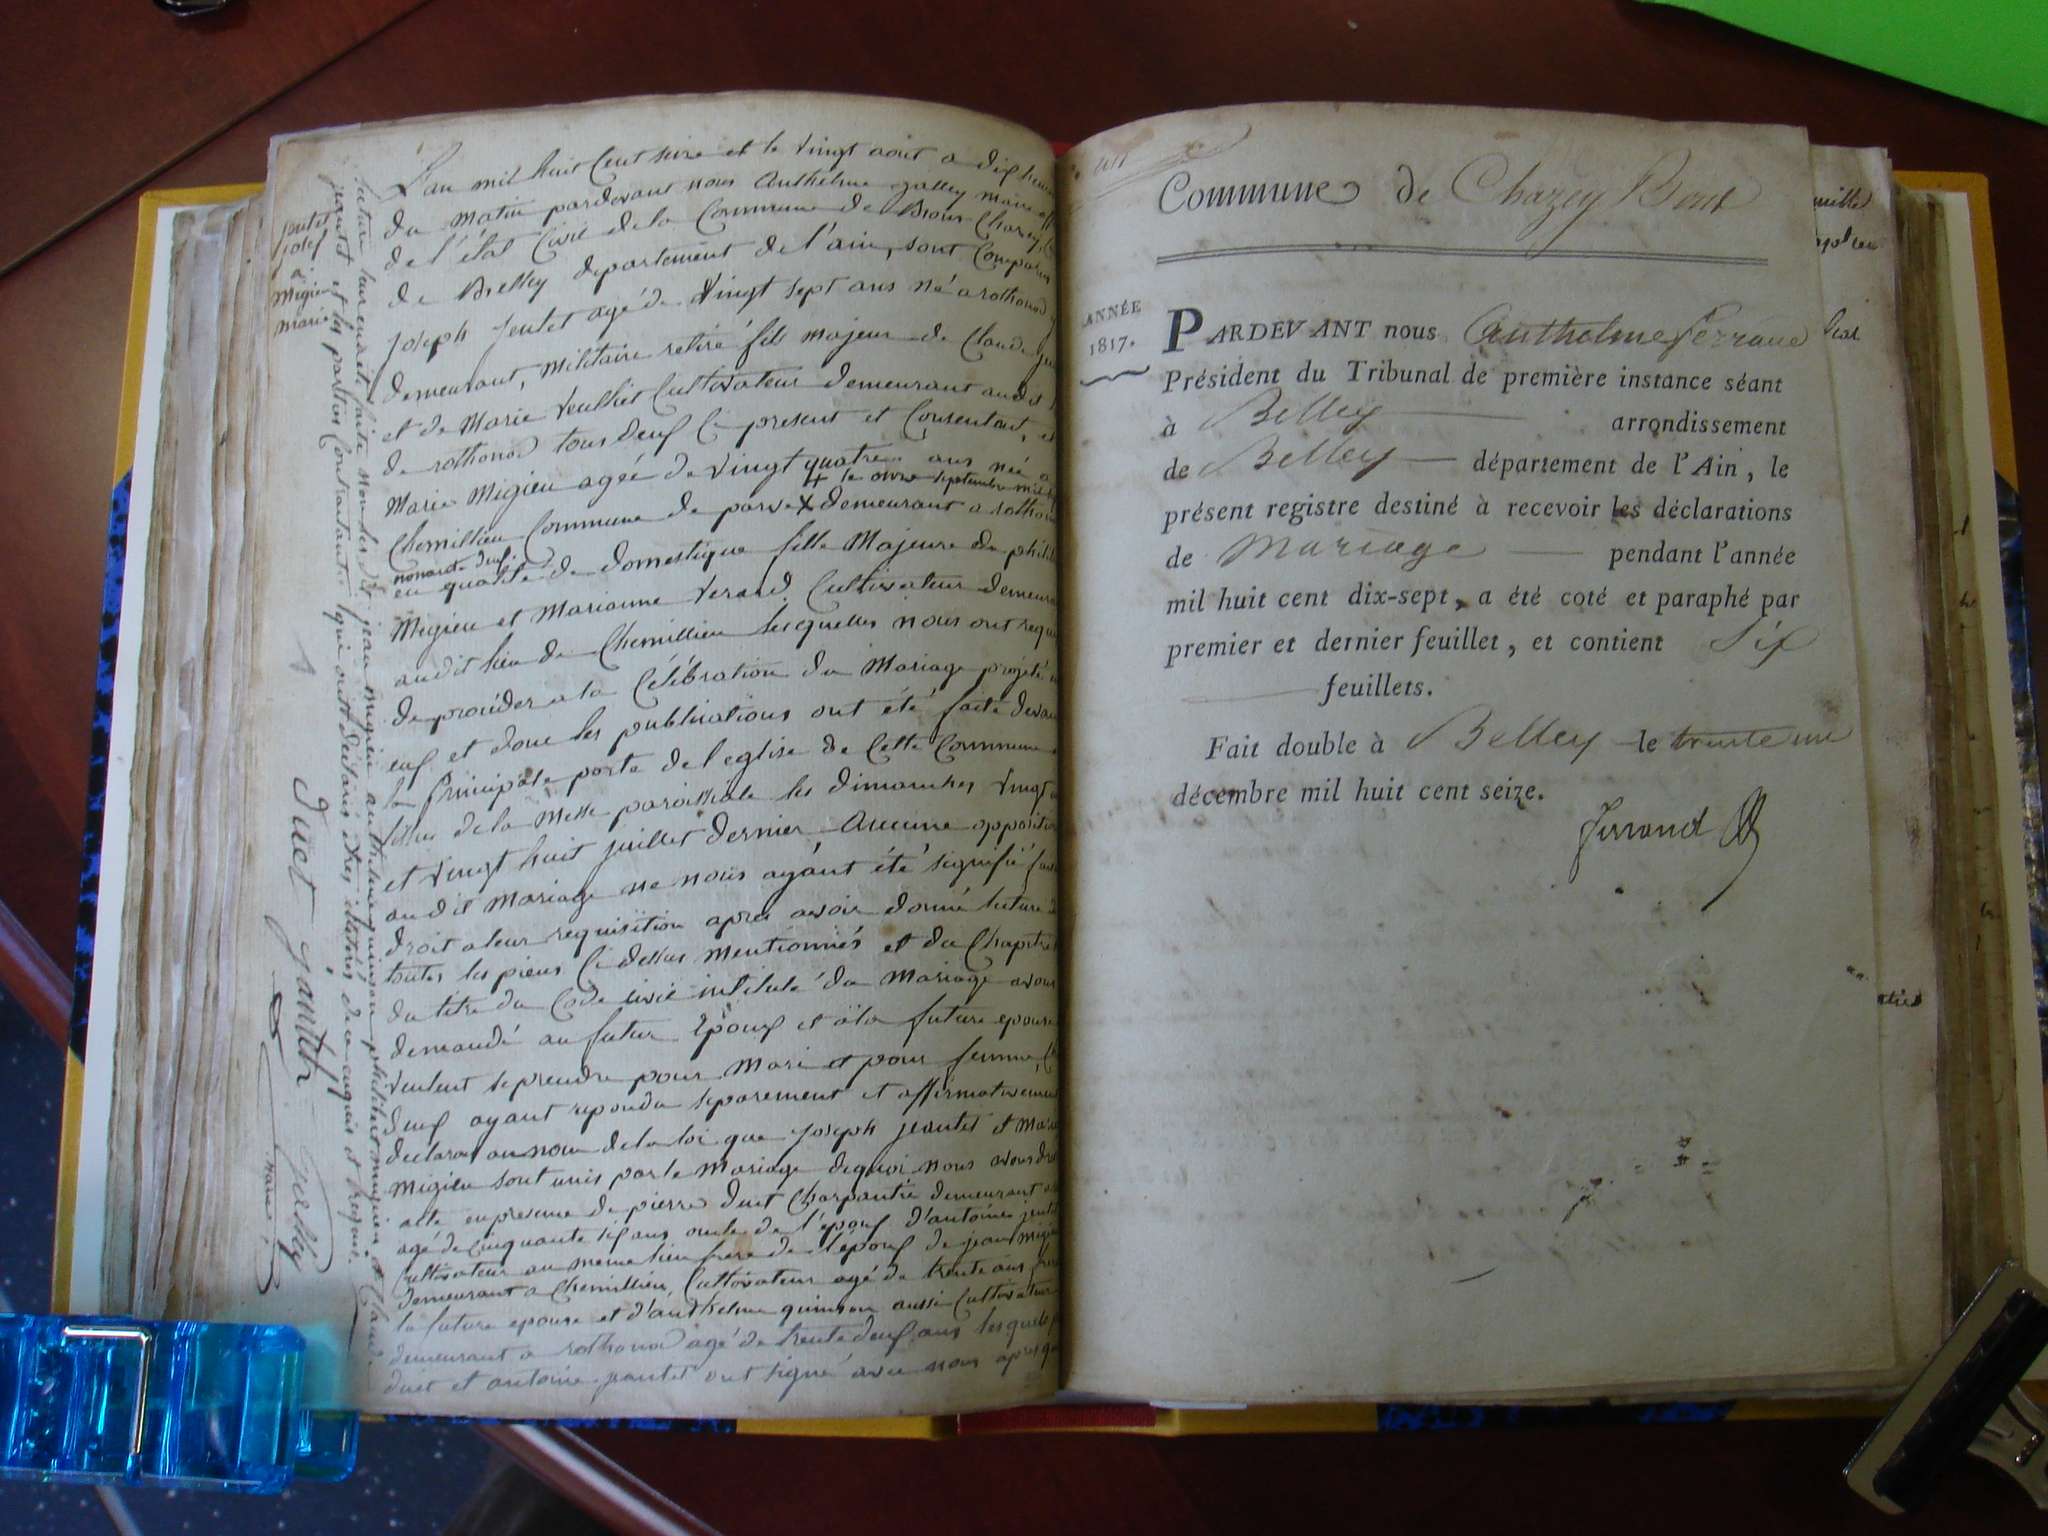 jentet
josef
et
Migieu
marie
L'an mil huit Cent seize et le vingt aout a dix heures
du Matin pardevant nous Anthelme galley maire
de l'état Civil de la Commune de Brens Chazey
de Belley departement de l'ain, sont Comparus
joseph jentet agé de Vingt sept ans né a rothonod y
demeurant, militaire retiré fils majeur de Claude
et de Marie Veulliet Cultivateur demeurant audit
de rothonod tous deux Ci present et Consentant, et
Marie Migieu ageé de vingt quatre ans neé a
le onze septembre mil
Chemillieu Commune de parve X demeurant a rothonod
nonante deux
en qualité de domestique fille Majeure de philibert
Migieu et Marianne Verard, Cultivateur demeurant
audit lieu de Chemillieu lesquelles nous ont requis
de procéder a la Célébration du Mariage projeté
eux et donc les publications ont été faite devant
la Principale porte de l'eglise de Cette Commune
issue de la Messe paroissiale les dimanches Vingt
et Vingt huit juillet dernier Aucune opposition
audit Mariage ne nous ayant été signifié
droit a leur requisition apres avoir donné lecture de
toutes les pieces Ci dessus mentionnés et du Chapitre
du titre du Code Civil intitulé du Mariage avons
demandé au futur Epoux et a la future epouse
veulent se prendre pour Mari et pour femme,
deux ayant repondu separement et affirmativement
declarons au nom de la loi que joseph jeantet et Marie
Migieu sont unis par le Mariage dequoi nous avons
acte en presence de pierre duet Charpantié demeurant
agé de Cinquante six ans oncle de l'epoux d'antoine jentet
Cultivateur au meme lieu frere de l'époux de jean migieu
demeurant a Chemillieu, Cultivateur agé de trente ans frere
la future epouse et d'anthelme quinson aussi Cultivateur
demeurant a rothonod agé de trente deux ans lesquels
duet et antoine jeantet ont signé avec nous apres que
lecture leur en a été faite non les dits jean migieu anthelme quinson philibert migieu et Claude
jeantet et les parties Contractantes qui ont déclarés etres illiteres de ce enquis et requis.
Duet jantet galley
maire
Commune de Chazey Bons
ANNÉE
1817.
PARDEVANT nous Anthelme Ferrand
Président du Tribunal de première instance séant
à Belley arrondissement
de Belley département de l'Ain, le
présent registre destiné à recevoir les déclarations
de Mariage pendant l'année
mil huit cent dix-sept, a été coté et paraphé par
premier et dernier feuillet, et contient Six
feuillets.
Fait double à Belley le trente un
décembre mil huit cent seize.
Ferrand